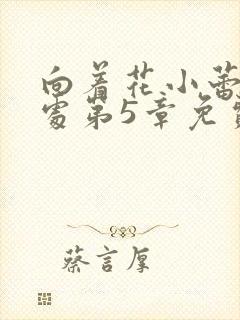 向着花小蕾
处第5章免费
蔡言厚